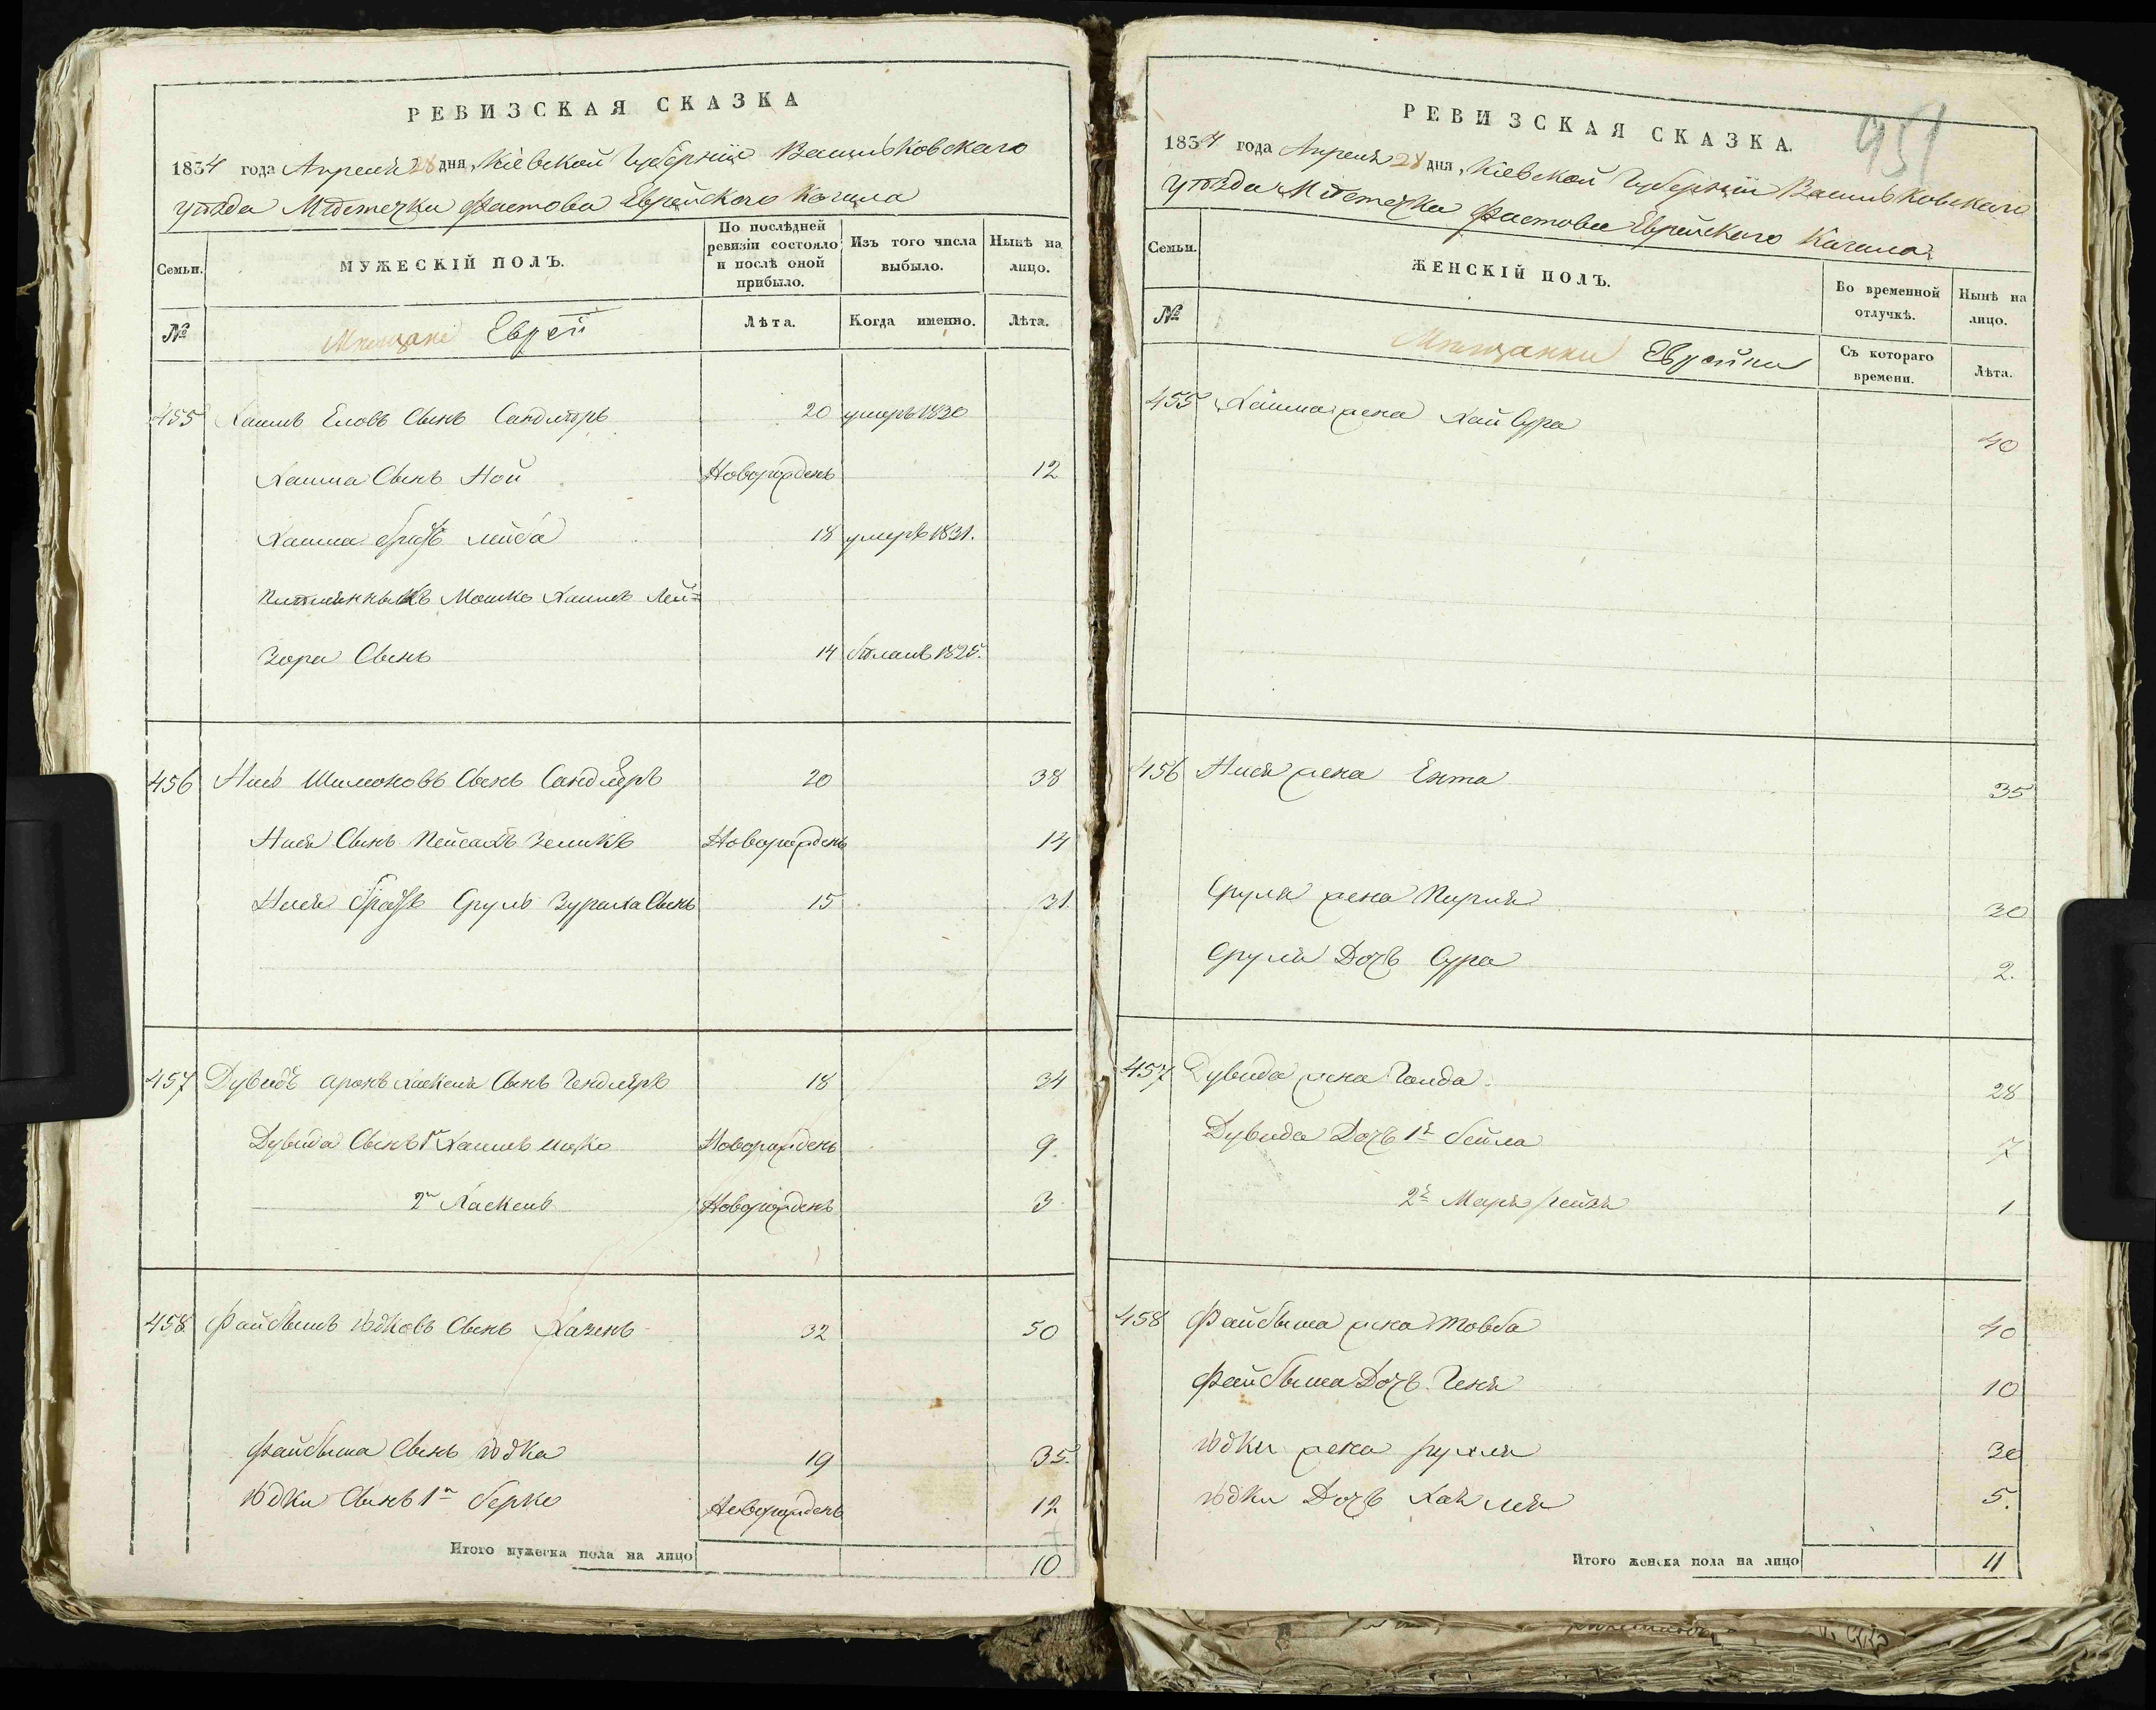 РЕВИЗСКАЯ СКАЗКА
1834 года Апреля 28 дня, Кіевской Губерніи Васильковскаго
уѣзда Мѣстечка Фастова Еврейскаго Кагала
Семьи.
МУЖЕСКІЙ ПОЛЪ.
По послѣдней ревизіи состояло и послѣ оной прибыло.
Изъ того числа выбыло.
Нынѣ на лицо.
№
Мѣщане Евреи
Лѣта.
Когда именно.
Лѣта.
455 Хаимъ Еловъ Сынъ Сандляръ 20 умеръ 1830
Хаима Сынъ Ной Новорожденъ 12
Хаима братъ Лейба 18 умеръ 1831.
Племянникъ Мошко Хаимъ Лей=
зора Сынъ 14 бѣжалъ 1825.
456 Нисъ Шимоновъ Сынъ Сандляръ 20 38
Нися Сынъ Пейсахъ Зеликъ Новорожденъ 14
Нися братъ Сруль Сынъ 15 31.
457 Дувидъ Аронъ Хаскеля Сынъ Гендляръ 18 34
Дувида Сынъ 1й Хаимъ Ицко Новорожденъ 9.
2й Хаскель Новорожденъ 3
458 Файбышъ Юдковъ Сынъ Хазенъ 32 50
Файбыша Сынъ Юдка 19 35.
Юдки Сынъ 1й Берко Новорожденъ 12
Итого мужеска пола на лицо 10
951
РЕВИЗСКАЯ СКАЗКА.
1834 года Апреля 28 дня, Кіевской Губерніи Васильковскаго
уѣзда Мѣстечка Фастова Еврейскаго Кагала
Семьи.
ЖЕНСКІЙ ПОЛЪ.
Во временной отлучкѣ.
Нынѣ на лицо.
№
Мѣщанки Еврейки
Съ котораго времени.
Лѣта.
455 Хаима жена Хай Сура 40
456 Нися жена Ента 35
Сруля жена Перля 30
Сруля Дочь Сура 2.
457 Дувида жена Голда 28
Дувида Дочь 1я Бейла 7
2я Марья Рейзя 1
458 Файбыша жена Товба 40
Файбыша Дочь Геня 10
Юдки жена Рухля 30
Юдки Дочь Хая Лея 5.
Итого женска пола на лицо 11